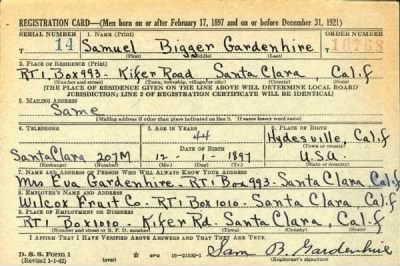 REGISTRATION CARD—(Men born on or after February 17, 1897 and on or before December 31, 1921)
SERIAL NUMBER 1. NAME (Print) ORDER NUMBER
14 Samuel Bigger Gardenhire
(First) (Middle) (Last)
2. PLACE OF RESIDENCE (Print)
RT1 Box 993 - Kifer Road Santa Clara, Calif
(Number and street) (Town, township, village, or city) (County) (State)
[THE PLACE OF RESIDENCE GIVEN ON THE LINE ABOVE WILL DETERMINE LOCAL BOARD
JURISDICTION; LINE 2 OF REGISTRATION CERTIFICATE WILL BE IDENTICAL]
3. MAILING ADDRESS
Same
[Mailing address if other than place indicated on line 2. If same insert word same]
4. TELEPHONE 5. AGE IN YEARS 6. PLACE OF BIRTH
44 Hydesville, Calif
DATE OF BIRTH (Town or county)
Santa Clara 207M 1897 U.S.A.
(Exchange) (Number) (Mo.) (Day) (Yr.) (State or country)
7. NAME AND ADDRESS OF PERSON WHO WILL ALWAYS KNOW YOUR ADDRESS
Mrs Eva Gardenhire - RT1 Box 993 - Santa Clara Calif
8. EMPLOYER'S NAME AND ADDRESS
Wilcox Fruit Co - RT1 Box 1010 - Santa Clara, Calif
9. PLACE OF EMPLOYMENT OR BUSINESS
RT1 Box 1010 - Kifer Rd - Santa Clara, Calif
(Number and street or R. F. D. number) (Town) (County) (State)
I AFFIRM THAT I HAVE VERIFIED ABOVE ANSWERS AND THAT THEY ARE TRUE.
D. S. S. Form 1 Sam B. Gardenhire
(Revised 1-1-42) (over) (Registrant's signature)